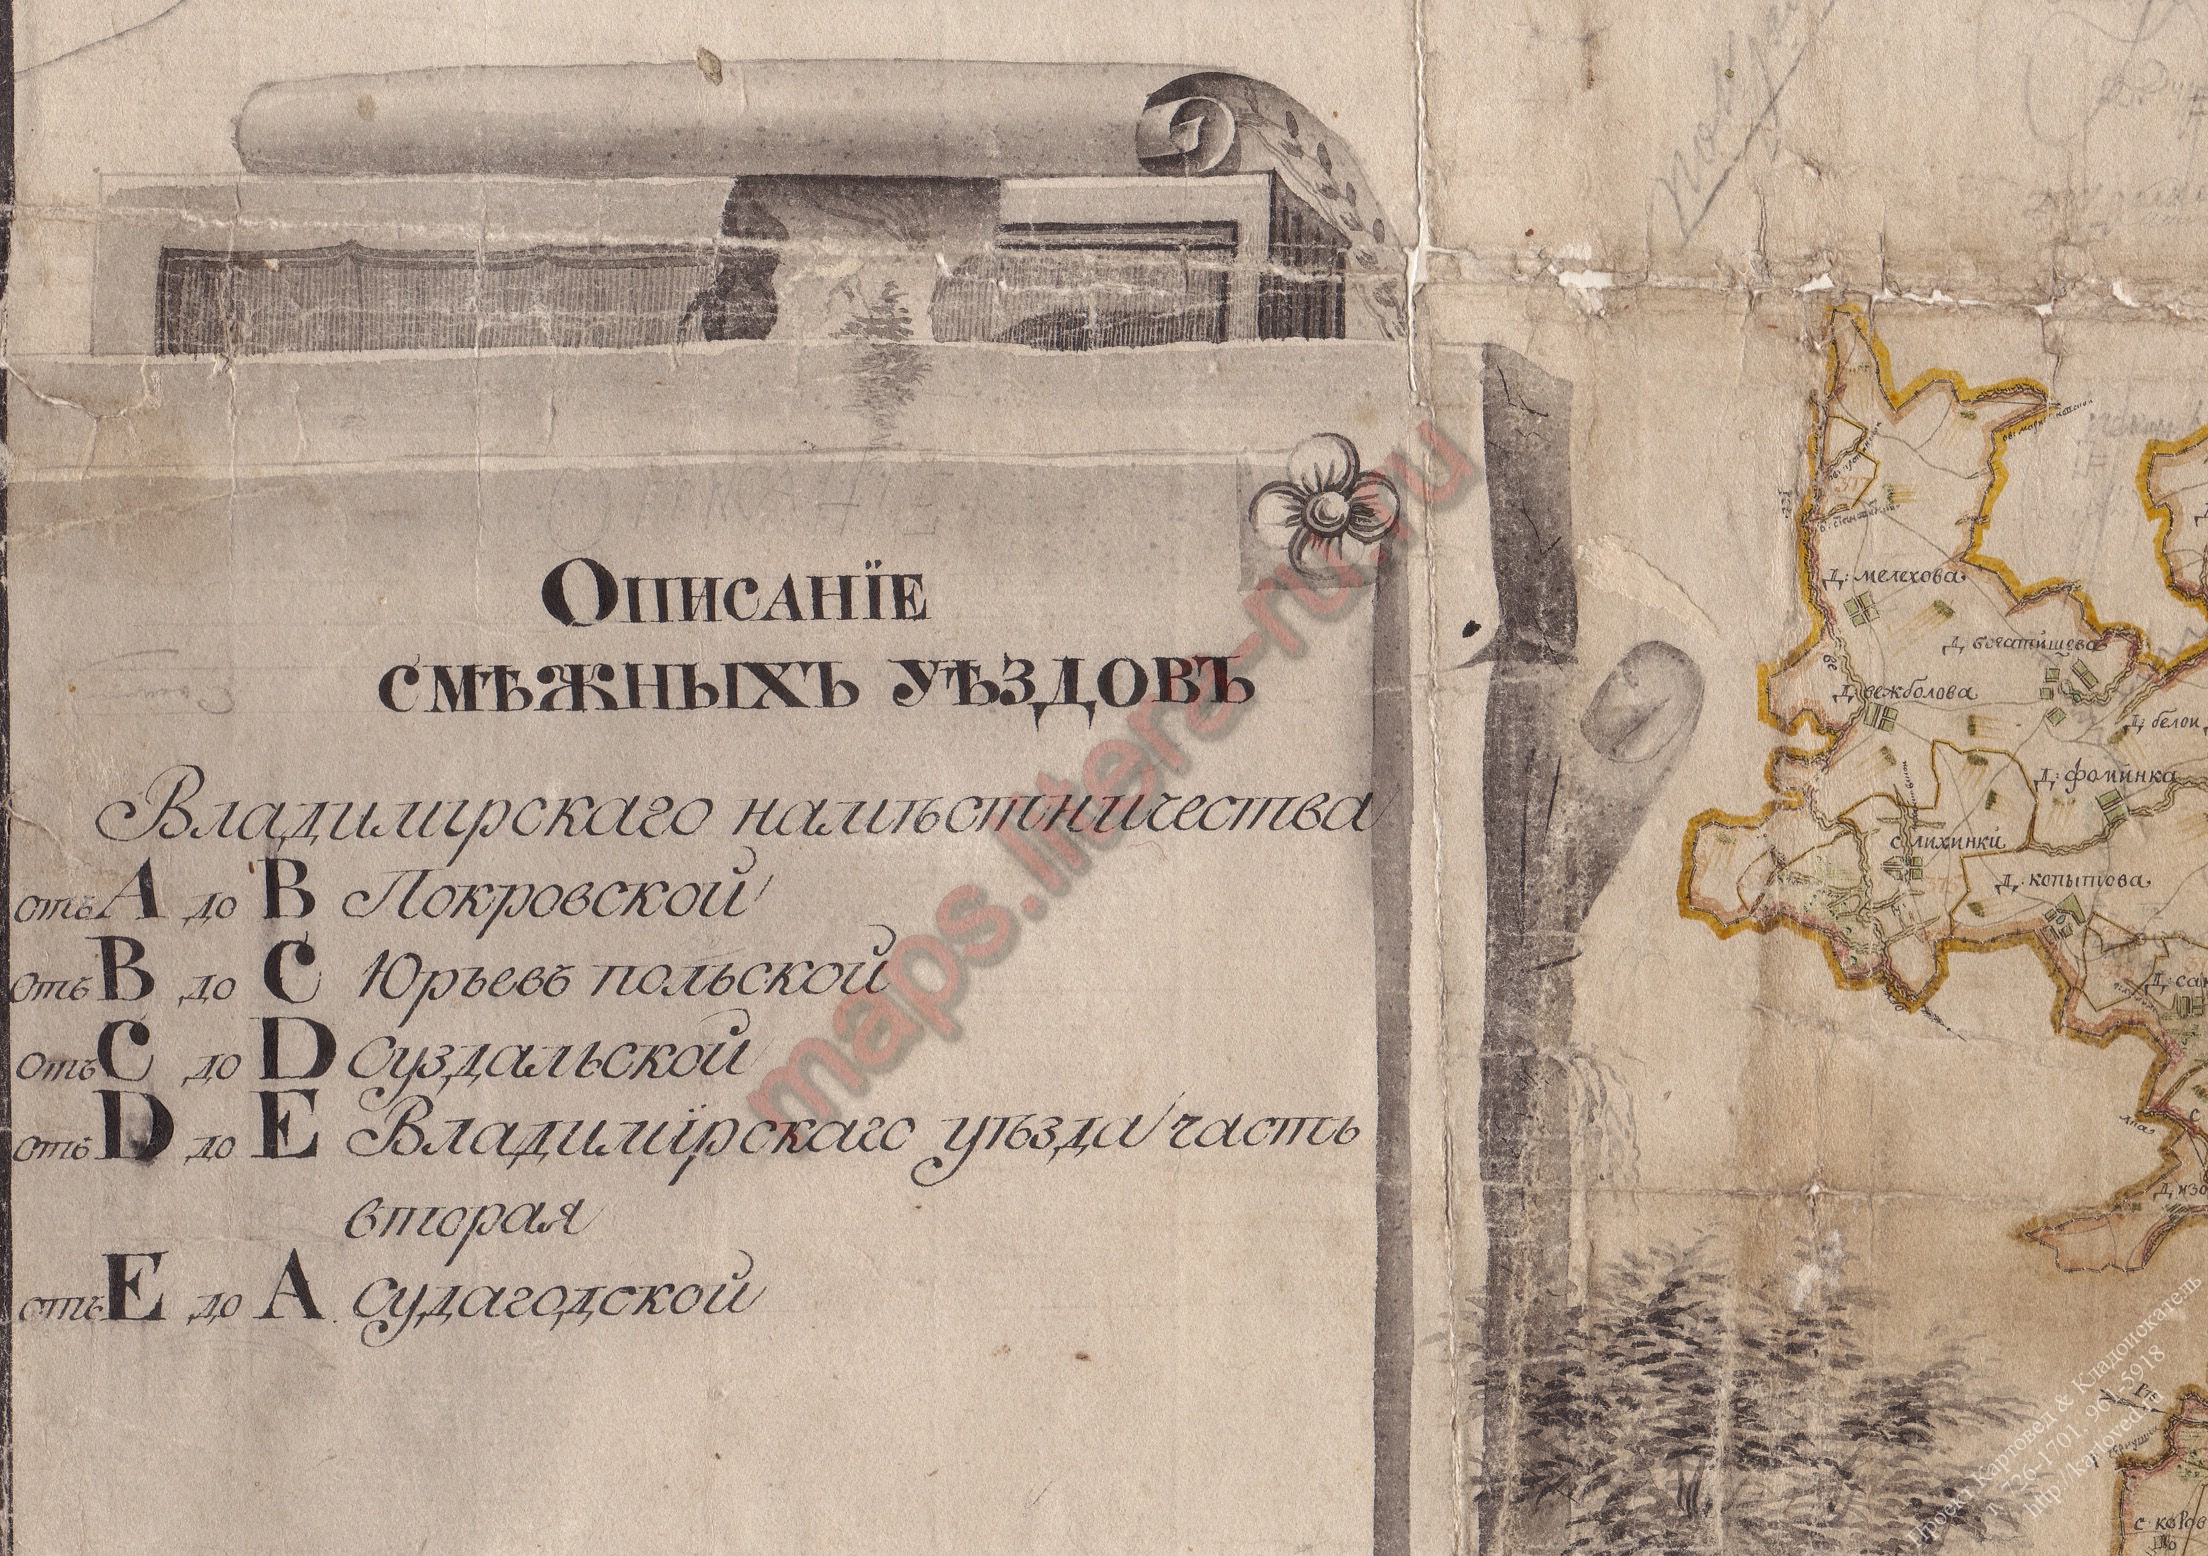 Описанїе
смѣжныхъ уѣздовъ
Владимирскаго намѣстничества
отъ A до B Покровской
отъ B до C Юрьевъ польской
отъ C до D Суздальской
отъ D до E Владимїрскаго уѣзда часть
вторая
отъ E до A Судагодской
Д: мелехова
Д. вежболова
Д: белои
Д: фоминка
с лихинки
Д. копытова
с коров
maps.litera-ru.ru
Проект Картовед & Кладоискатель
т. 726-1701, 961-5918
http://kartoved.ru